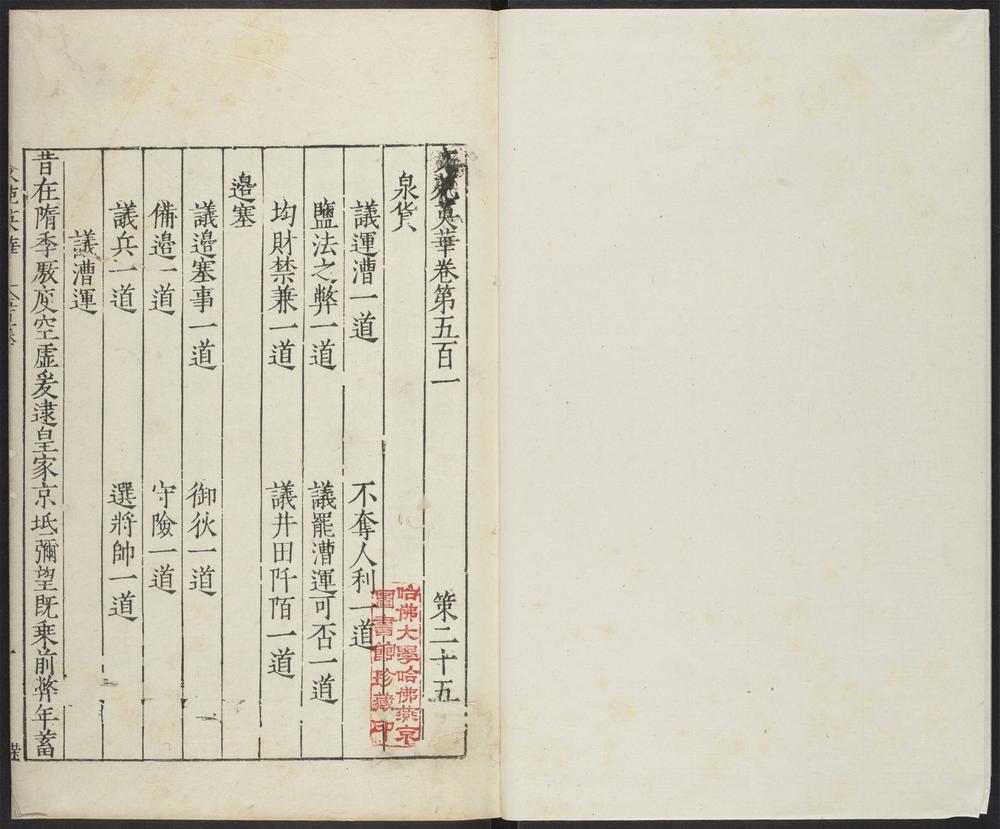 文苑英華卷第五百一 策二十五
泉貨
議運漕一道 不奪人利一道
鹽法之弊一道 議罷漕運可否一道
均財禁兼一道 議井田阡陌一道
邊塞
議邊塞事一道 御狄一道
備邊一道 守險一道
議兵一道 選將帥一道
議漕運
昔在隋季厫庾空虛爰逮皇家京坻彌望既乗前弊年蓄
文苑英華
一
哈佛大學哈佛燕京
圖書館珍藏印